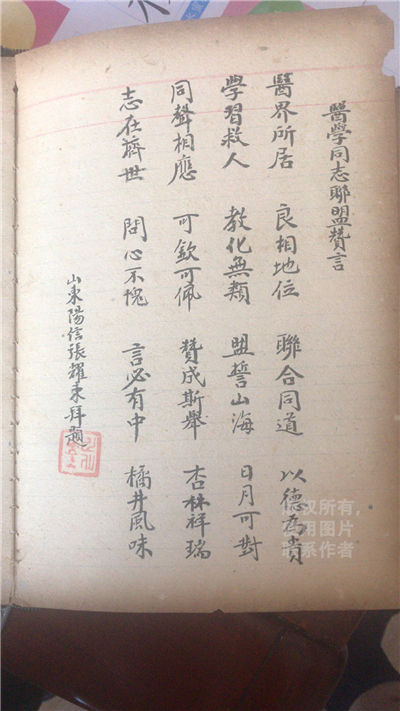 醫學同志聯盟贊言
醫界所居 良相地位 聯合同道 以德為貴
學習救人 教化無類 盟誓山海 日月可對
同聲相應 可欽可佩 贊成斯舉 杏林祥瑞
志在薺世 問心不愧 言必有中 橘井風味
山東陽信張耀東拜題
版权所有,
使用图片
联系作者